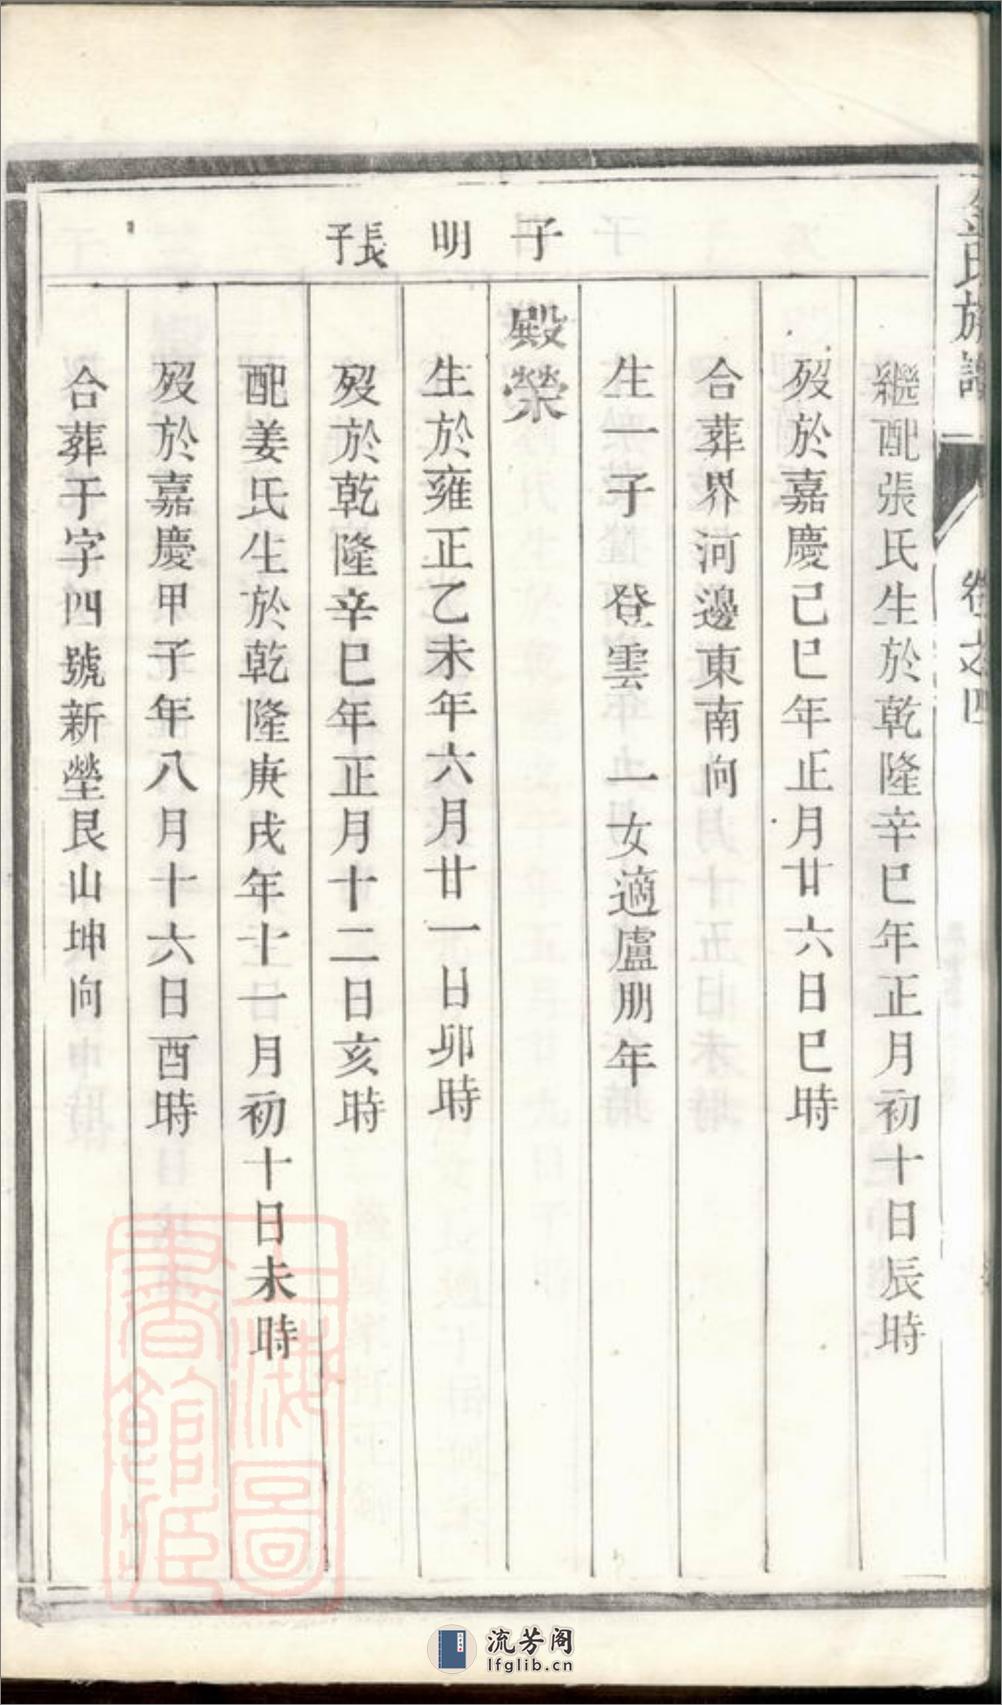 氏族譜
卷之四
子明長子
繼配張氏生於乾隆辛巳年正月初十日辰時
歿於嘉慶己巳年正月廿六日巳時
合葬界河邊東南向
生一子 登雲 一女適盧朋年
殿榮
生於雍正乙未年六月廿一日卯時
歿於乾隆辛巳年正月十二日亥時
配姜氏生於乾隆庚戌年十一月初十日未時
歿於嘉慶甲子年八月十六日酉時
合葬于字四號新塋艮山坤向
上海圖
書館藏
流芳阁
lfglib.cn